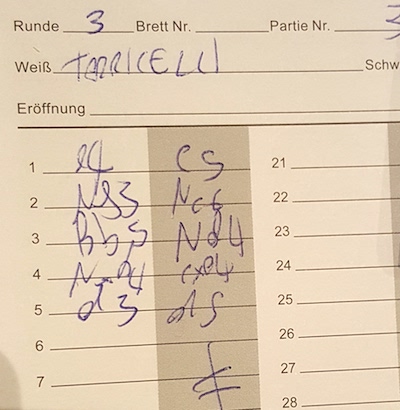 Runde 3 Brett Nr. Partie Nr. 3
Weiß TORRICELLI Schw
Eröffnung
1 e4 c5 21
2 Nf3 Nc6 22
3 Bb5 Nd4 23
4 Nxd4 cxd4 24
5 d3 d5 25
6 26
7 27
28